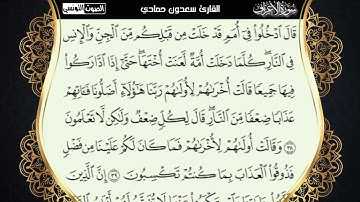 سورة الأعراف
القارئ سعدون حمادي
الصوت التونسي
قَالَ ٱدْخُلُوا۟ فِىٓ أُمَمٍ قَدْ خَلَتْ مِن قَبْلِكُم مِّنَ ٱلْجِنِّ وَٱلْإِنسِ
فِى ٱلنَّارِ كُلَّمَا دَخَلَتْ أُمَّةٌ لَّعَنَتْ أُخْتَهَا حَتَّىٰٓ إِذَا ٱدَّارَكُوا۟
فِيهَا جَمِيعًا قَالَتْ أُخْرَىٰهُمْ لِأُولَىٰهُمْ رَبَّنَا هَٰٓؤُلَآءِ أَضَلُّونَا فَـَٔاتِهِمْ
عَذَابًا ضِعْفًا مِّنَ ٱلنَّارِ قَالَ لِكُلٍّ ضِعْفٌ وَلَٰكِن لَّا تَعْلَمُونَ
٣٨ وَقَالَتْ أُولَىٰهُمْ لِأُخْرَىٰهُمْ فَمَا كَانَ لَكُمْ عَلَيْنَا مِن فَضْلٍ
فَذُوقُوا۟ ٱلْعَذَابَ بِمَا كُنتُمْ تَكْسِبُونَ ٣٩ إِنَّ ٱلَّذِينَ